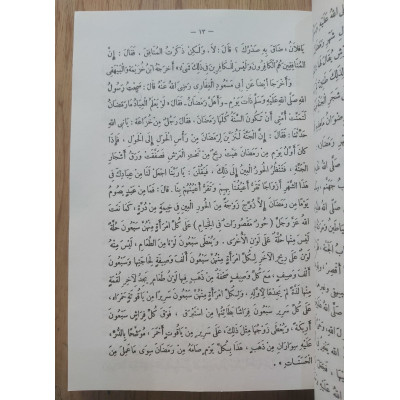 — ١٣ —
يَافُلَانُ، ضَاقَ بِهِ صَدْرُكَ؟ قَالَ: لَا، وَلَكِنْ ذَكَرْتُ الْمُنَافِقَ، فَقَالَ: إِنَّ
الْمُنَافِقِينَ هُمُ الْكَافِرُونَ وَلَيْسَ لِلْكَافِرِينَ فِي ذَلِكَ شَيْءٌ» أَخْرَجَهُ ابْنُ خُزَيْمَةَ وَالْبَيْهَقِي
وَأَخْرَجَا أَيْضًا عَنْ أَبِي مَسْعُودٍ الْغِفَارِي رَضِيَ اللهُ عَنْهُ قَالَ: سَمِعْتُ رَسُولَ
اللهِ صَلَّى اللهُ عَلَيْهِ وَسَلَّمَ ذَاتَ يَوْمٍ، وَأَهَلَّ رَمَضَانُ، فَقَالَ: لَوْ يَعْلَمُ الْعِبَادُ مَا رَمَضَانُ
لَتَمَنَّتْ أُمَّتِي أَنْ تَكُونَ السَّنَةُ كُلُّهَا رَمَضَانَ، فَقَالَ رَجُلٌ مِنْ خُزَاعَةَ: يَا نَبِيَّ اللهِ
حَدِّثْنَا، فَقَالَ: إِنَّ الْجَنَّةَ لَتُزَيَّنُ لِرَمَضَانَ مِنْ رَأْسِ الْحَوْلِ إِلَى الْحَوْلِ، فَإِذَا
كَانَ أَوَّلُ يَوْمٍ مِنْ رَمَضَانَ هَبَّتْ رِيحٌ مِنْ تَحْتِ الْعَرْشِ فَصَفَّقَتْ وَرَقَ أَشْجَارِ
الْجَنَّةِ، فَتَنْظُرُ الْحُورُ الْعِينُ إِلَى ذَلِكَ، فَيَقُلْنَ: يَا رَبَّنَا اجْعَلْ لَنَا مِنْ عِبَادِكَ فِي
هَذَا الشَّهْرِ أَزْوَاجًا تَقَرُّ أَعْيُنُنَا بِهِمْ وَتَقَرُّ أَعْيُنُهُمْ بِنَا. قَالَ: فَمَا مِنْ عَبْدٍ يَصُومُ
يَوْمًا مِنْ رَمَضَانَ إِلَّا زُوِّجَ زَوْجَةً مِنَ الْحُورِ الْعِينِ فِي خَيْمَةٍ مِنْ دُرَّةٍ، كَمَا نَعَتَ
اللهُ عَزَّ وَجَلَّ (حُورٌ مَقْصُورَاتٌ فِي الْخِيَامِ) عَلَى كُلِّ امْرَأَةٍ مِنْهُنَّ سَبْعُونَ حُلَّةً
لَيْسَ مِنْهَا حُلَّةٌ عَلَى لَوْنِ الْأُخْرَى، وَيُعْطَى سَبْعُونَ لَوْنًا مِنَ الطَّعَامِ، لَيْسَ مِنْهُ
لَوْنٌ عَلَى رِيحِ الْآخَرِ لِكُلِّ امْرَأَةٍ مِنْهُنَّ سَبْعُونَ أَلْفَ وَصِيفَةٍ لِحَاجَتِهَا وَسَبْعُونَ
أَلْفَ وَصِيفٍ، مَعَ كُلِّ وَصِيفٍ صَحْفَةٌ مِنْ ذَهَبٍ فِيهَا لَوْنُ طَعَامٍ يَجِدُ لِآخِرِ لُقْمَةٍ
لَذَّةً لَمْ يَجِدْهَا لِأَوَّلِهِ، وَلِكُلِّ امْرَأَةٍ مِنْهُنَّ سَبْعُونَ سَرِيرًا مِنْ يَاقُوتَةٍ حَمْرَاءَ،
عَلَى كُلِّ سَرِيرٍ سَبْعُونَ فِرَاشًا بَطَائِنُهَا مِنْ اسْتَبْرَقٍ، فَوْقَ كُلِّ فِرَاشٍ سَبْعُونَ
أَرِيكَةً، وَيُعْطَى زَوْجُهَا مِثْلَ ذَلِكَ، عَلَى سَرِيرٍ مِنْ يَاقُوتٍ أَحْمَرَ، مُوَشَّحًا بِالدُّرِّ،
عَلَيْهِ سِوَارَانِ مِنْ ذَهَبٍ، هَذَا بِكُلِّ يَوْمٍ صَامَهُ مِنْ رَمَضَانَ سِوَى مَا عَمِلَ مِنَ
الْحَسَنَاتِ».